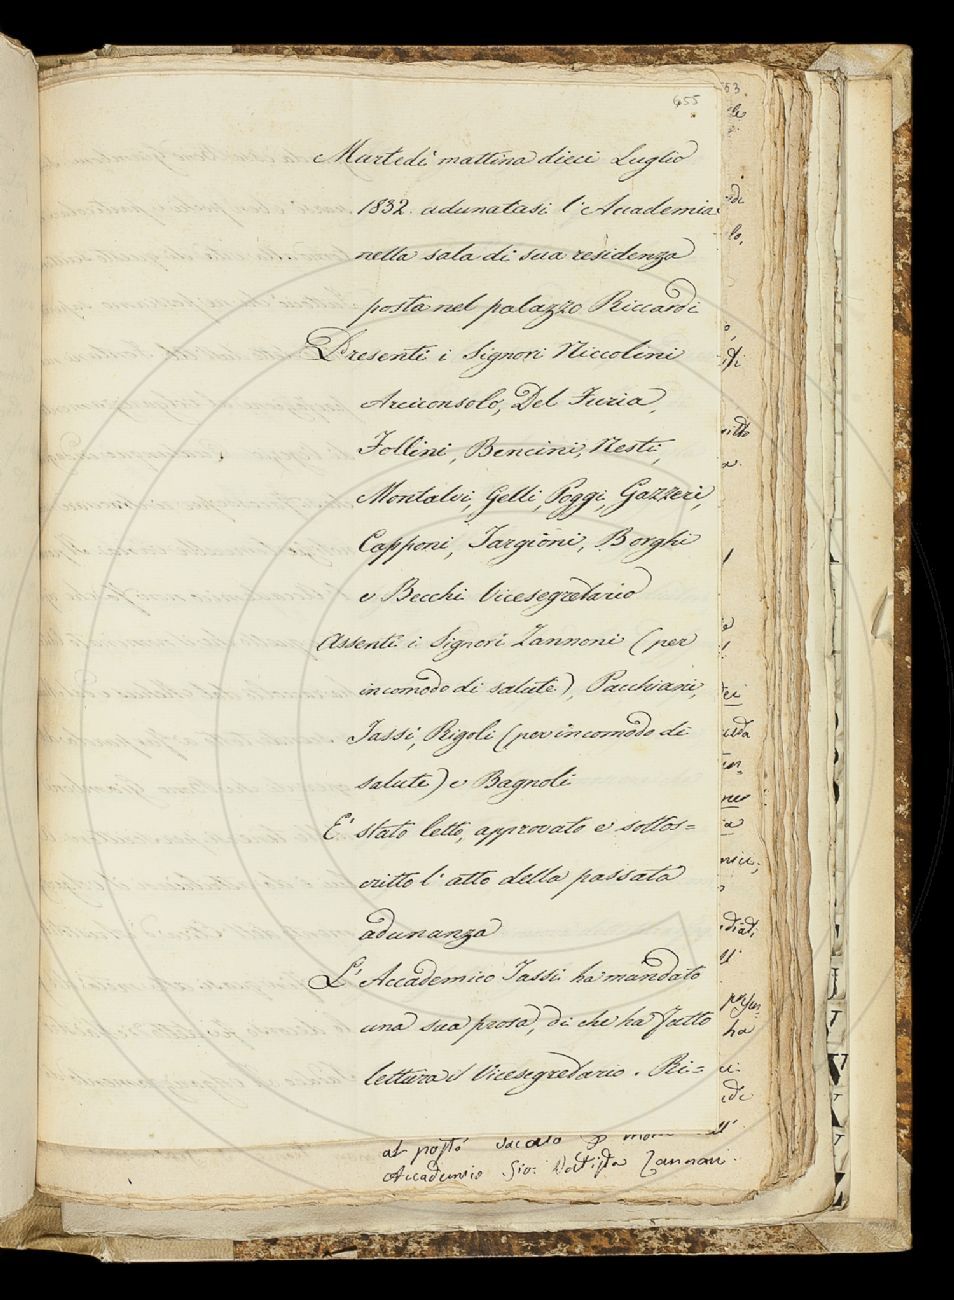 655
Martedì mattina dieci Luglio
1832. adunatasi l'Accademia
nella sala di sua residenza
posta nel palazzo Riccardi
Presenti i Signori Niccolini
Arciconsolo, Del Furia,
Follini, Bencini, Nesti,
Montalvi, Gelli, Poggi, Gazzeri,
Capponi, Targioni, Borghi
e Becchi Vicesegretario
Assenti i Signori Zannoni (per
incomodo di salute), Pacchiani,
Tassi, Rigoli (per incomodo di
salute) e Bagnoli
E' stato letto, approvato e sottos=
critto l'atto della passata
adunanza
L'Accademico Tassi ha mandato
una sua prosa, di che ha fatto
lettura il Vicesegretario. Ri=
al posto vacato
Accademico Gio: Batista Zannoni